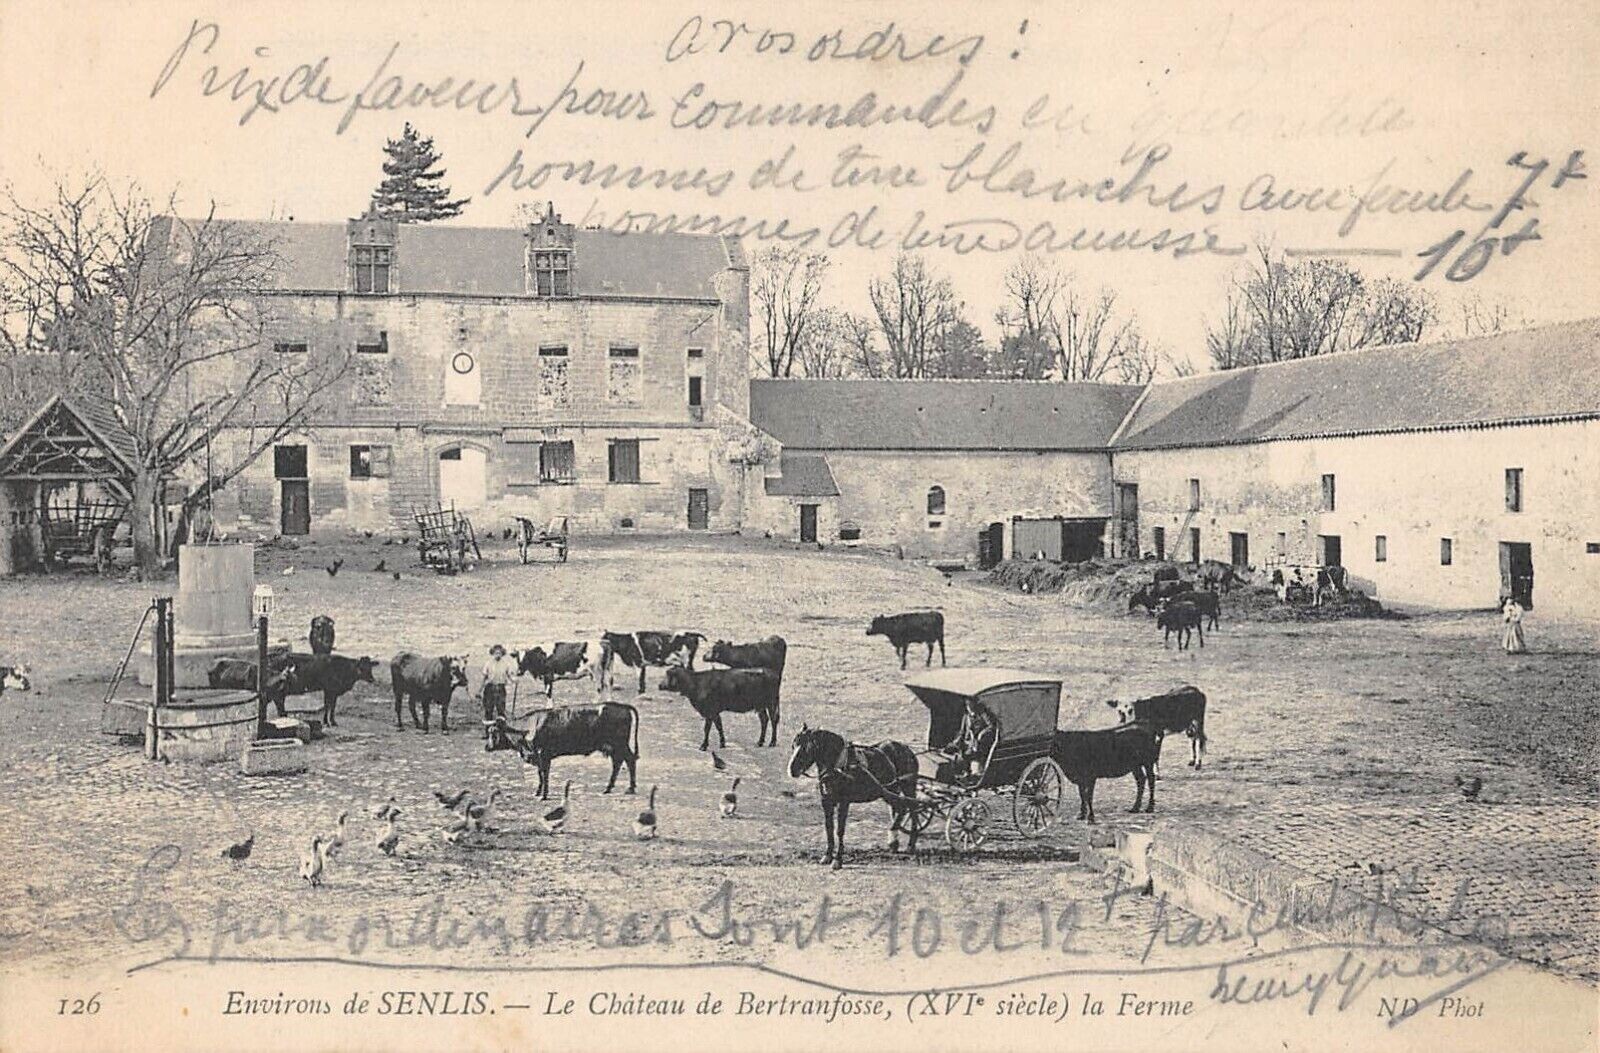 a vos ordres !
Prix de faveur pour Commandes en
pommes de terre blanches avec fécule 7f
pommes de terre saucisse — 10f
Les prix ordinaires sont 10 et 12f par cent Kilos
henry
126 Environs de SENLIS. — Le Château de Bertranfosse, (XVIe siècle) la Ferme ND Phot